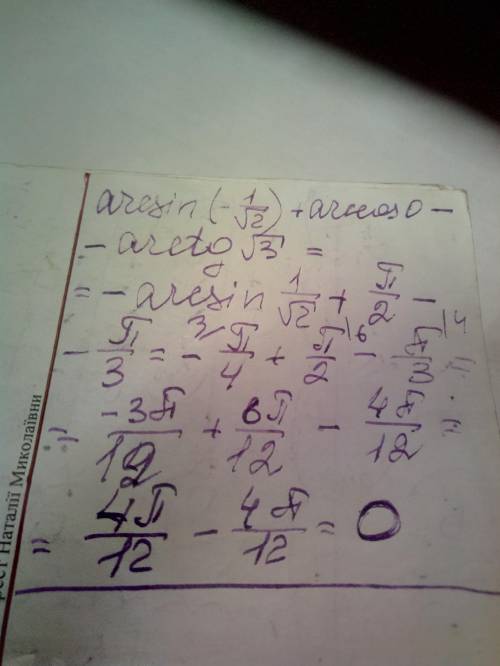 arcsin(-1/√2) + arccos 0 -
- arctg √3 =
= - arcsin 1/√2 + π/2 -
- π/3 = - ³⁄π/4 + π/2 ⁄⁶ - π/3 ⁄⁴ =
= -3π/12 + 6π/12 - 4π/12 =
= 4π/12 - 4π/12 = 0
рест Наталії Миколаївни